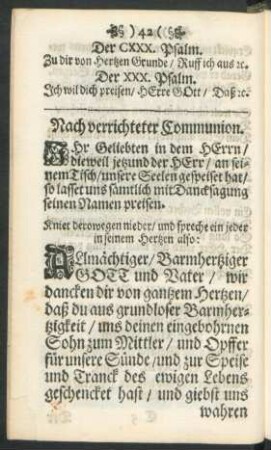 ) 42 (
Der CXXX. Psalm.
Zu dir von Hertzen Grunde / Ruff ich aus ꝛc.
Der XXX. Psalm.
Ich wil dich preisen / HErre GOtt / Daß ꝛc.
Nach verrichteter Communion.
IHr Geliebten in dem HErrn /
dieweil jetzund der HErr / an sei-
nem Tisch / unsere Seelen gespeiset hat /
so lasset uns sämtlich mit Dancksagung
seinen Namen preisen.
Kniet derowegen nieder / und spreche ein jeder
in seinem Hertzen also:
ALlmächtiger / Barmhertziger
GOTT und Vater / wir
dancken dir von gantzem Hertzen /
daß du aus grundloser Barmher-
tzigkeit / uns deinen eingebohrnen
Sohn zum Mittler / und Opffer
für unsere Sünde / und zur Speise
und Tranck des ewigen Lebens
geschencket hast / und giebst uns
wahren